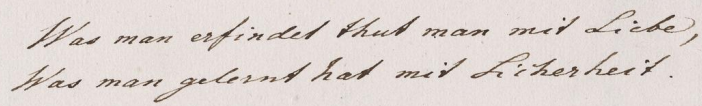 Was man erfindet thut man mit Liebe,
Was man gelernt hat mit Sicherheit.